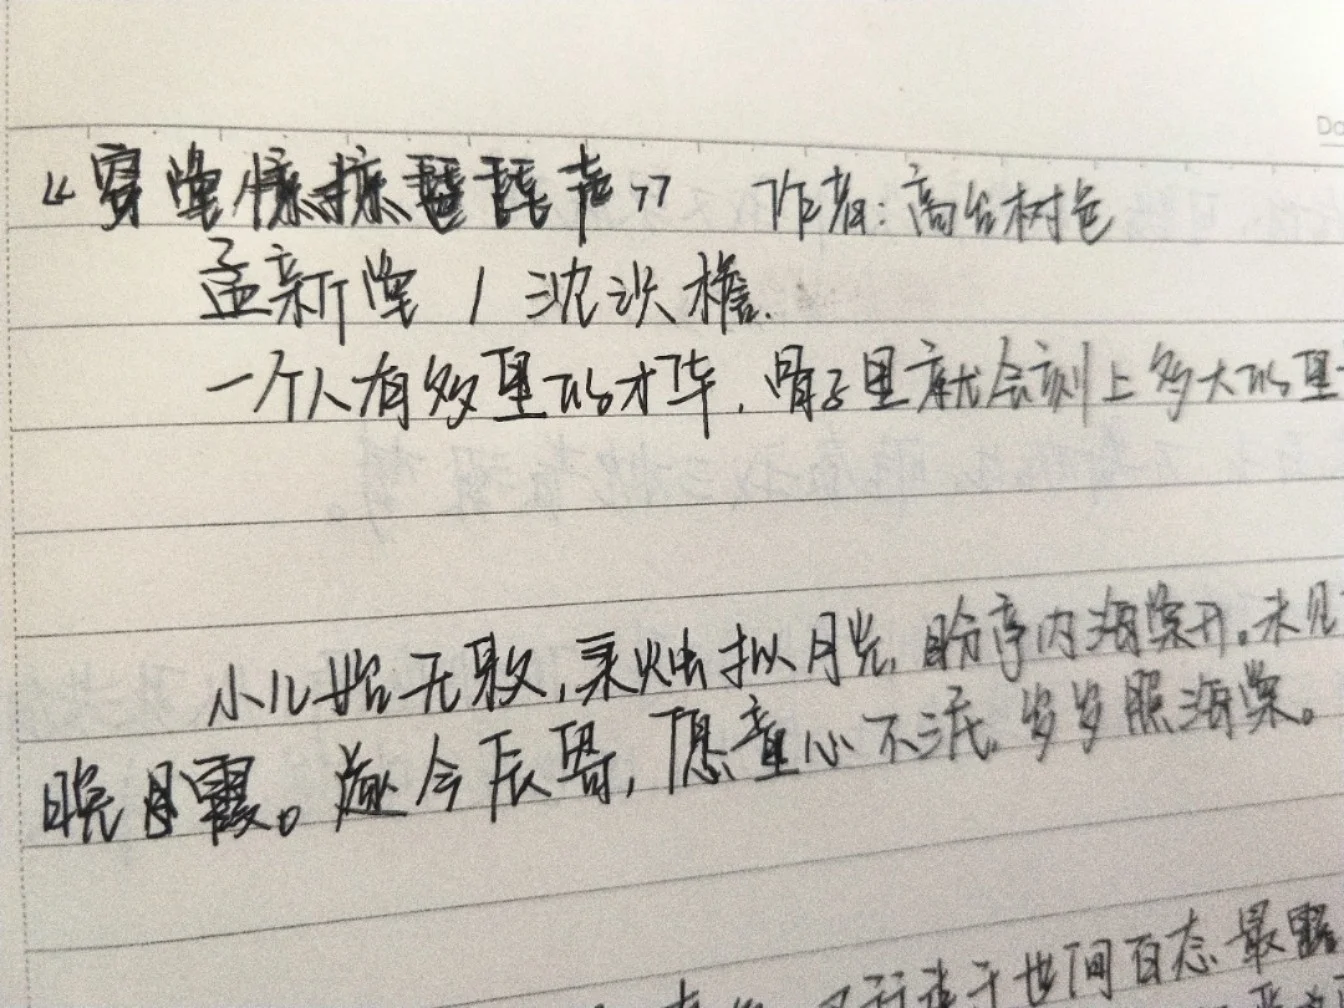 《穿堂惊掠琵琶声》 作者:高台树色
孟新堂 / 沈识檐.
一个人有多重的才华,骨子里就会刻上多大的
小儿始无,秉烛拟月光,盼亭内海棠开。未见
晓月霞。趁今辰,愿童心不泯,岁岁照海棠。
于世间百态最